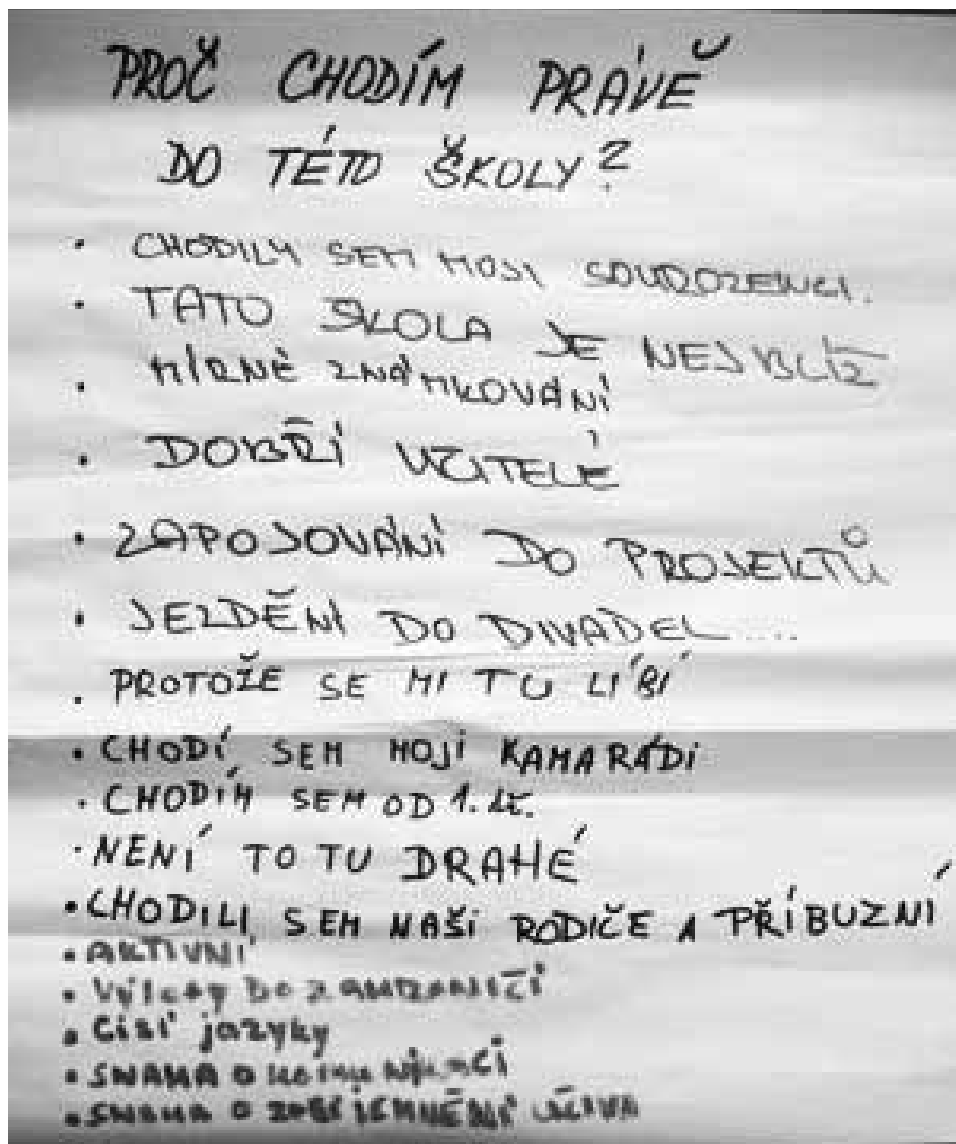 PROČ CHODÍM PRÁVĚ
DO TÉTO ŠKOLY?
• CHODILY SEM MOJI SOUROZENCI.
• TATO ŠKOLA JE NEJBLÍŽ
• MÍRNÉ ZNÁMKOVÁNÍ
• DOBŘÍ UČITELÉ
• ZAPOJOVÁNÍ DO PROJEKTŮ
• JEZDĚNÍ DO DIVADEL....
• PROTOŽE SE MI TU LÍBÍ
• CHODÍ SEM MOJI KAMARÁDI
• CHODÍM SEM OD 1. tř.
• NENÍ TO TU DRAHÉ
• CHODILI SEM NAŠI RODIČE A PŘÍBUZNÍ
• AKTIVNÍ
• Výlety DO ZAHRANIČÍ
• Cizí jazyky
• SNAHA O KOMUNIKACI
• SNAHA O ZPŘÍJEMNĚNÍ UČIVA